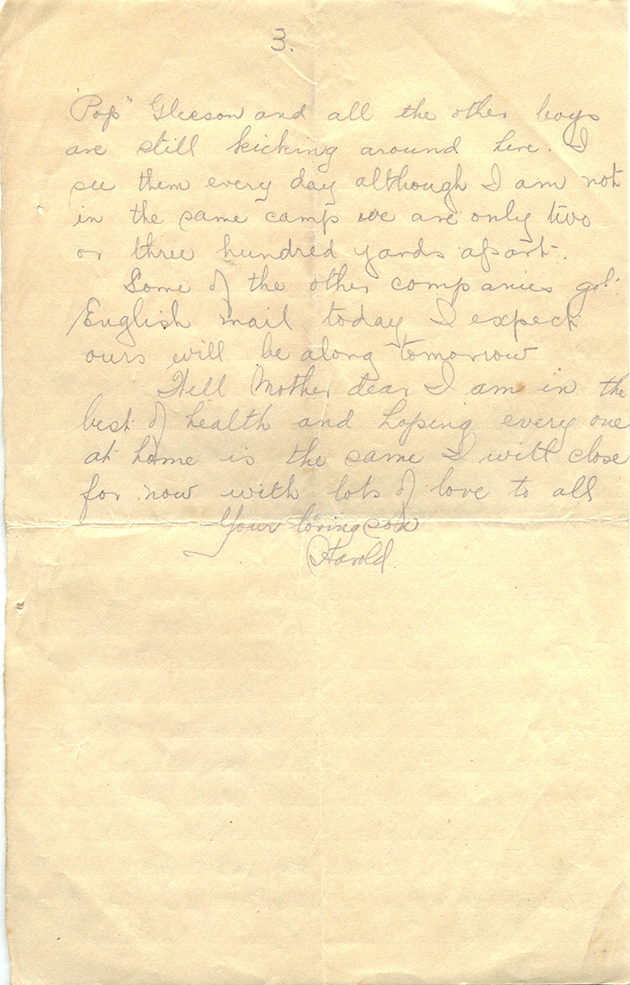 3.
"Pop" Gleeson and all the other boys
are still kicking around here. I
see them every day although I am not
in the same camp we are only two
or three hundred yards apart.
Some of the other companies got
English mail today I expect
ours will be along tomorrow
Well Mother dear I am in the
best of health and hoping every one
at home is the same I will close
for now with lots of love to all
Your loving son
Harold.